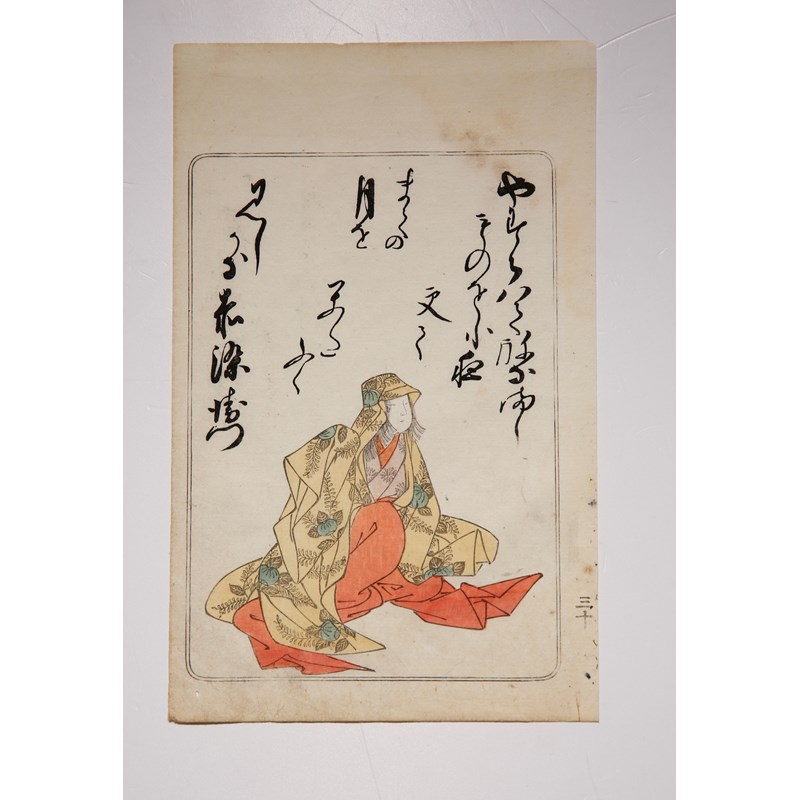 やすらハてねなまし
ものを小夜
更て
かた
ふく
まての
月を
見し
かな赤染衛門
三十